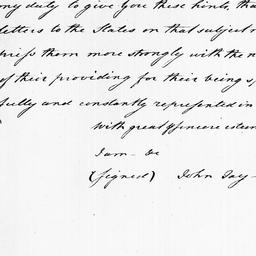 my duty to give you these hints, tha
letters to the States on that subject
press them more strongly with the n
of their providing for their being
fully and constantly represented in
with great & sincere esteem
I am - &c
(signed) John Jay -